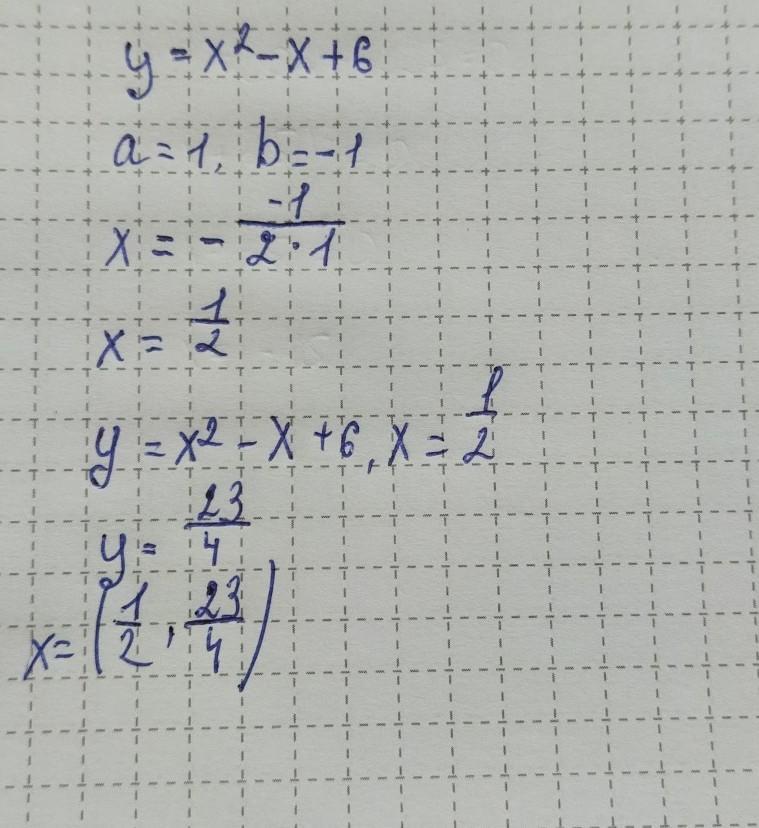 y = x² - x + 6
a = 1, b = -1
x = - \frac{-1}{2·1}
x = \frac{1}{2}
y = x² - x + 6, x = \frac{1}{2}
y = \frac{23}{4}
x = (\frac{1}{2}, \frac{23}{4})